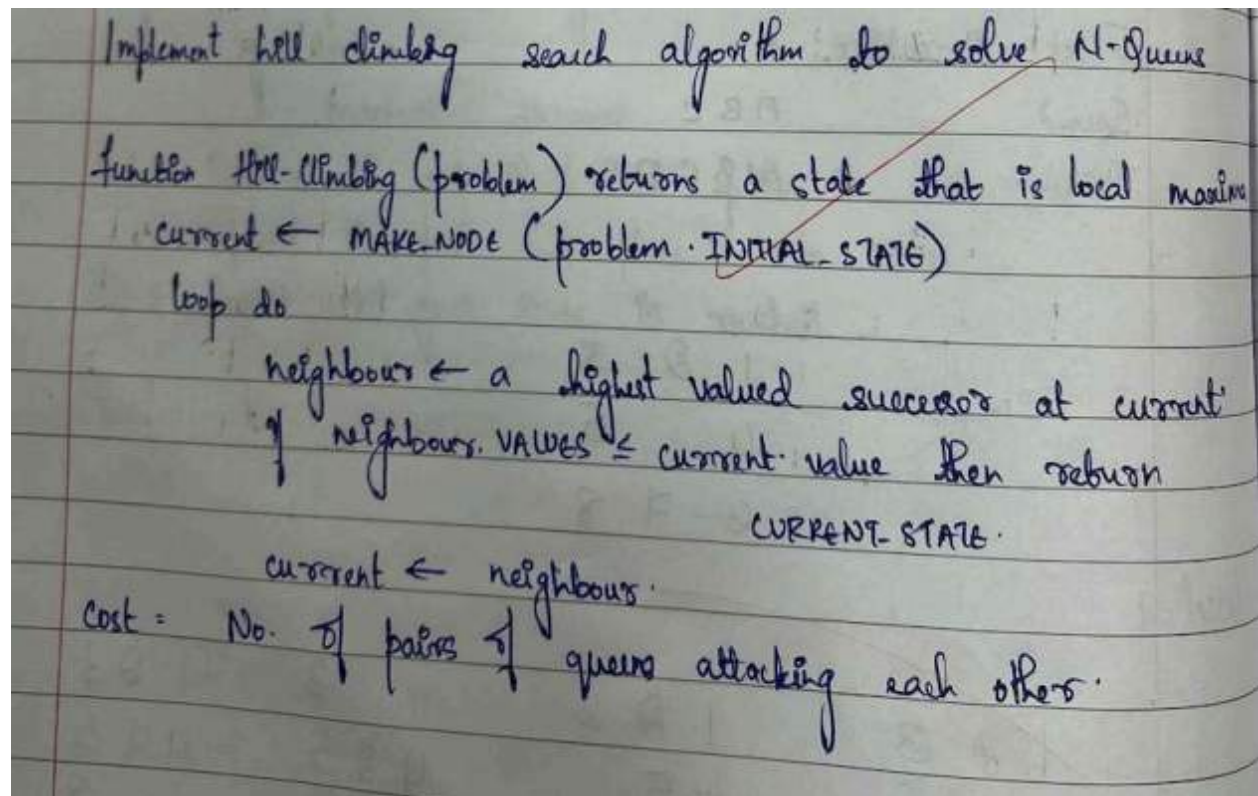 Implement hill climbing search algorithm to solve N-Queens
function Hill-Climbing (problem) returns a state that is local maxima
current ← MAKE-NODE (problem. INITIAL-STATE)
loop do
neighbour ← a highest valued successor at current
if neighbour. VALUES ≤ current. value then return
CURRENT-STATE.
current ← neighbour.
Cost = No. of pairs of queens attacking each other.